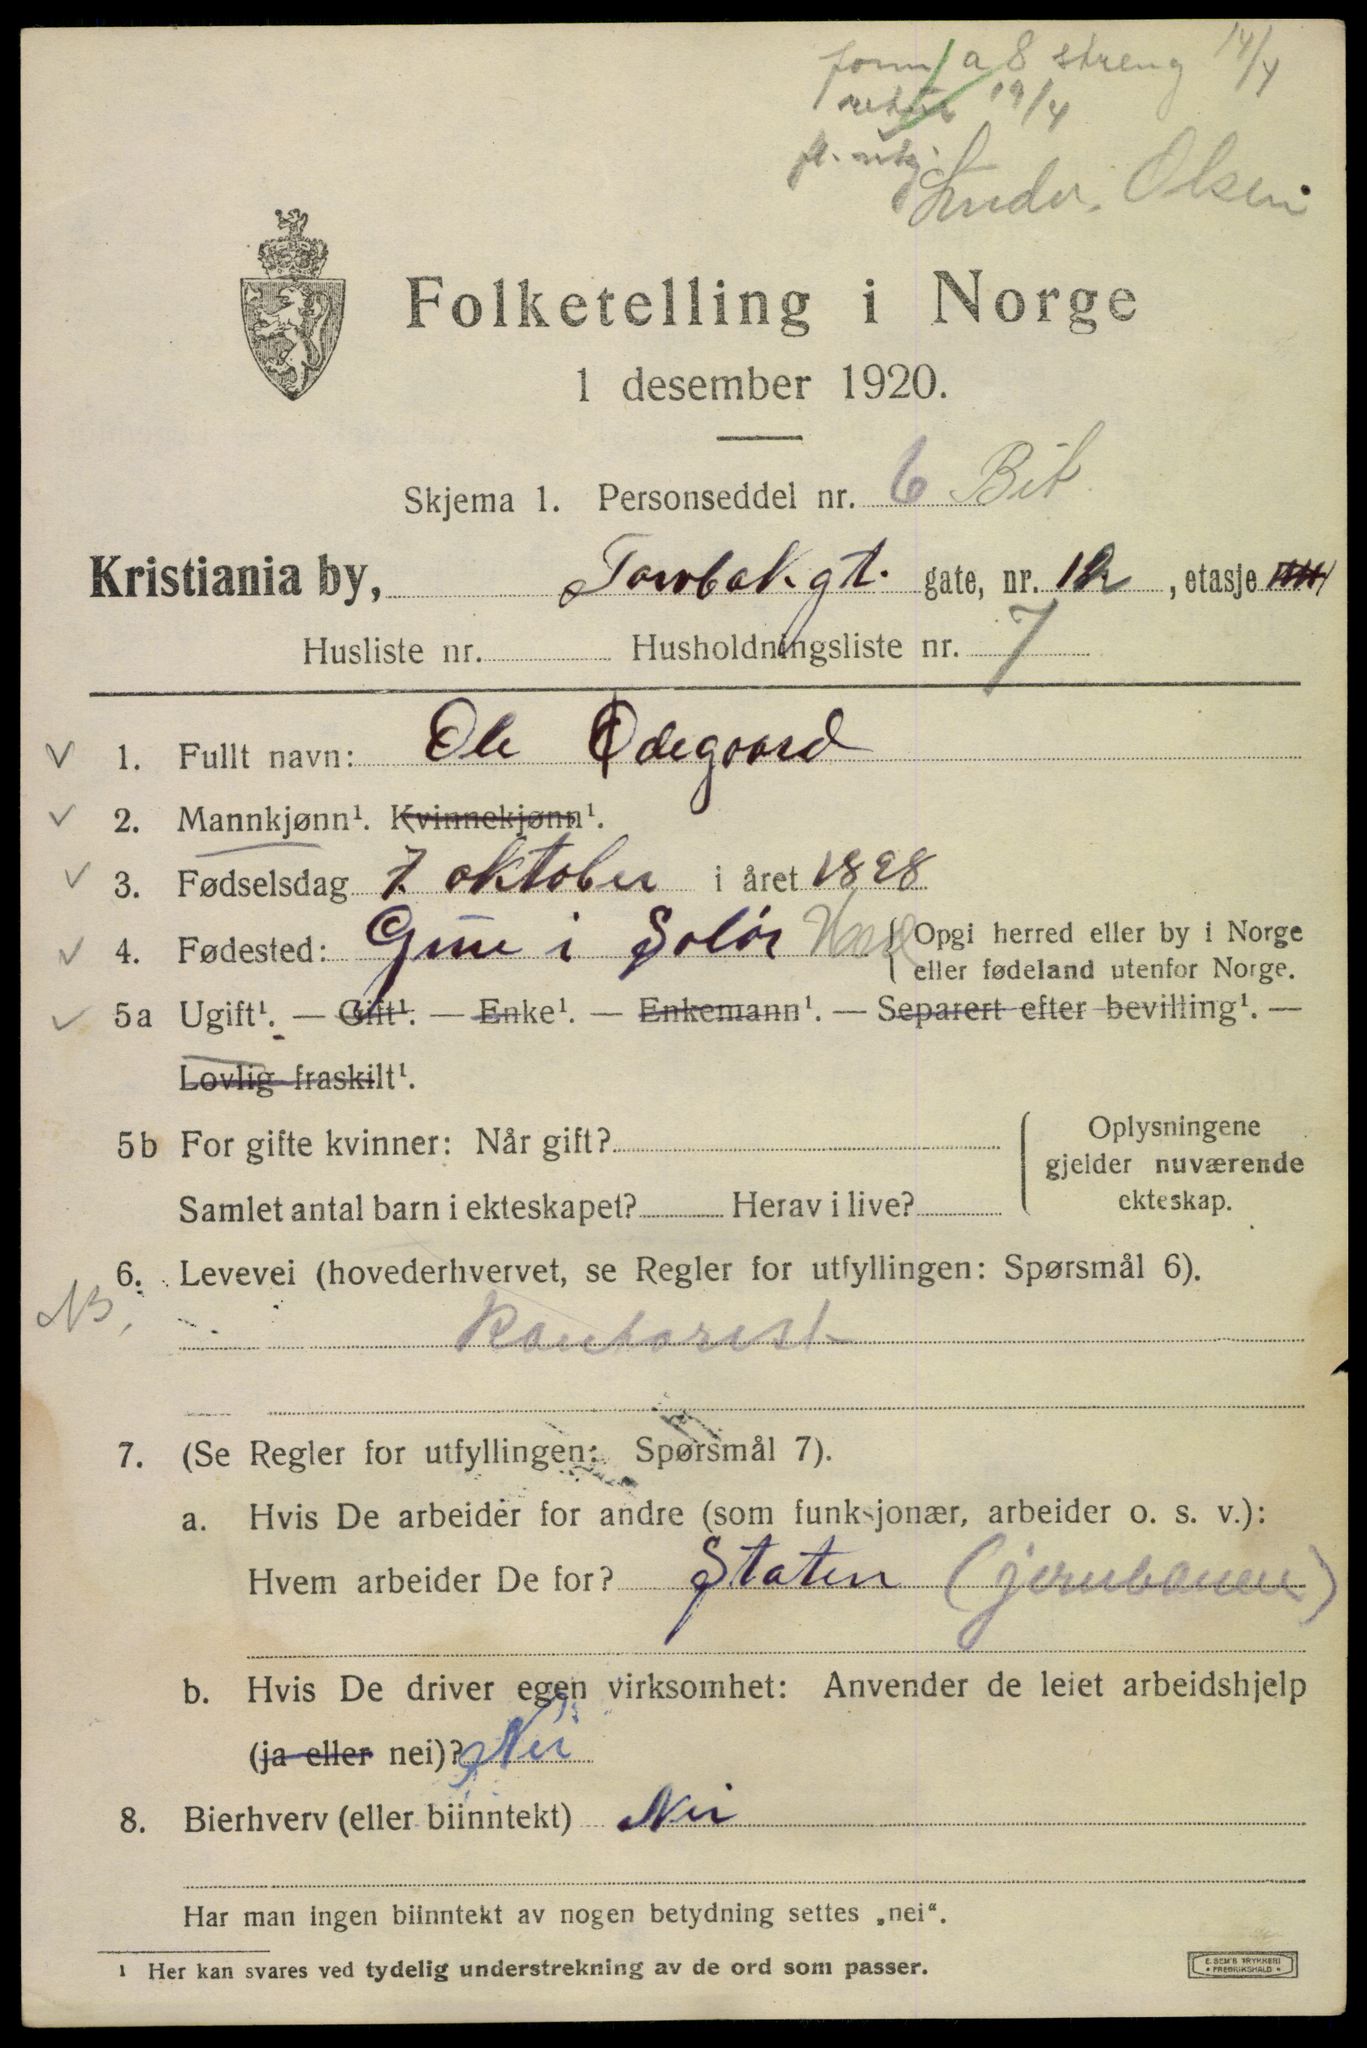 form a 8 streng 14/4
19/4
Olsen
Folketelling i Norge
1 desember 1920.
Skjema 1. Personseddel nr. 6 Bik
Kristiania by, Torvbakgt. gate, nr. 12, etasje
Husliste nr. Husholdningsliste nr. 7
1. Fullt navn: Ole Ødegaard
2. Mannkjønn¹. Kvinnekjønn¹.
3. Fødselsdag 7. oktober i året 1898
4. Fødested: Grue i Solør { Opgi herred eller by i Norge
eller fødeland utenfor Norge.
5a Ugift¹. — Gift¹. — Enke¹. — Enkemann¹. — Separert efter bevilling¹. —
Lovlig fraskilt¹.
5b For gifte kvinner: Når gift?
Samlet antal barn i ekteskapet? Herav i live?
Oplysningene
gjelder nuværende
ekteskap.
6. Levevei (hovederhvervet, se Regler for utfyllingen: Spørsmål 6).
NB.
Kontorist
7. (Se Regler for utfyllingen: Spørsmål 7).
a. Hvis De arbeider for andre (som funksjonær, arbeider o. s. v.):
Hvem arbeider De for? Staten (jernbanen)
b. Hvis De driver egen virksomhet: Anvender de leiet arbeidshjelp
(ja eller nei)? Nei
8. Bierhverv (eller biinntekt) Nei
Har man ingen biinntekt av nogen betydning settes „nei“.
¹ Her kan svares ved tydelig understrekning av de ord som passer.
E. SEM'S TRYKKERI
• FREDRIKSHALD •